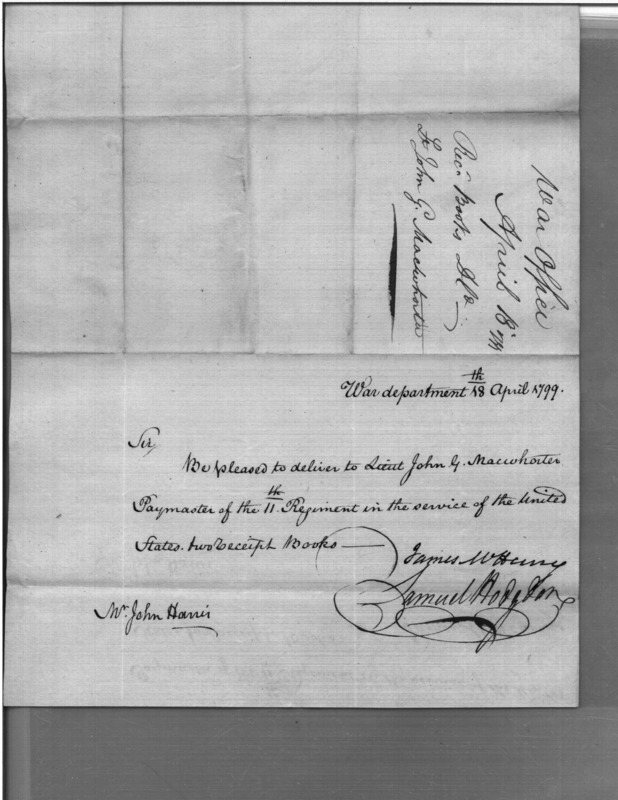 War Office
April 18 1799
Rec.t Books Del.d
Lt John G. Macwhorter
War department 18th April 1799.
Sir
Be pleased to deliver to Lieut John G. Macwhorter
Paymaster of the 11th Regiment in the service of the United
States two Receipt Books
James McHenry
Samuel Hodgdon
Mr. John Harris